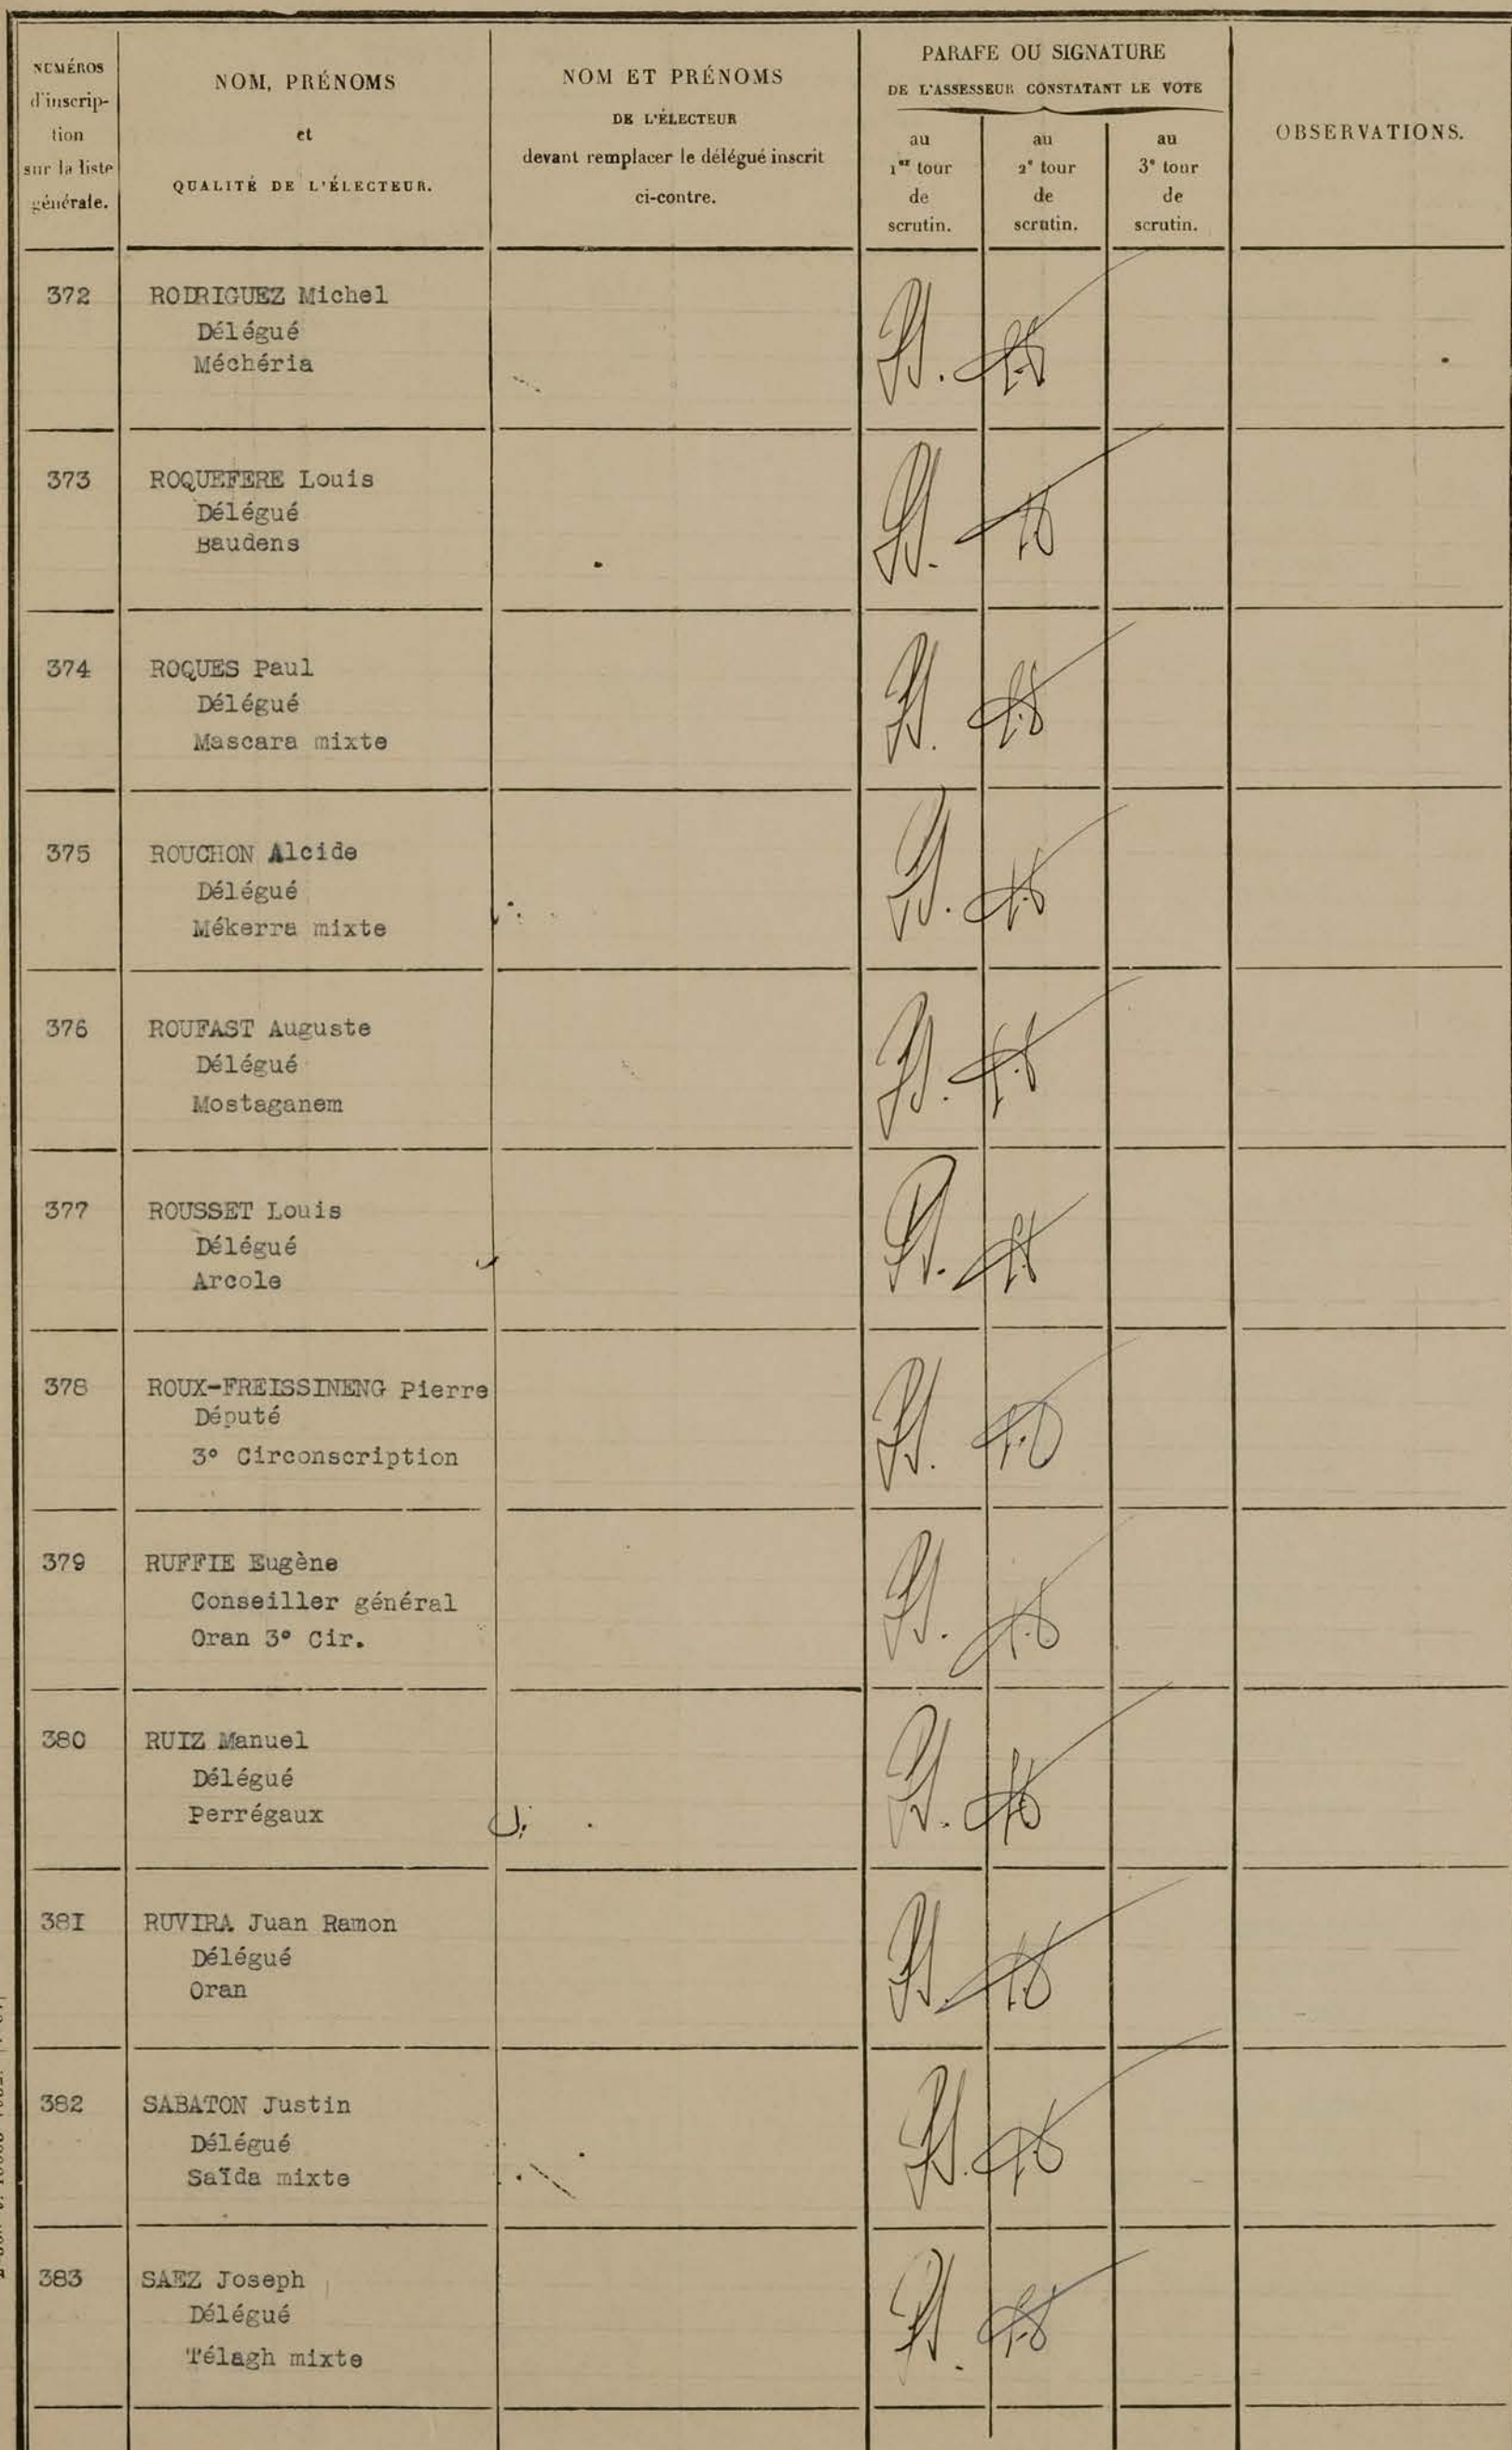 NUMÉROS
d'inscrip-
tion
sur la liste
générale.
NOM, PRÉNOMS
et
QUALITÉ DE L'ÉLECTEUR.
NOM ET PRÉNOMS
DE L'ÉLECTEUR
devant remplacer le délégué inscrit
ci-contre.
PARAFE OU SIGNATURE
DE L'ASSESSEUR CONSTATANT LE VOTE
au
1er tour
de
scrutin.
au
2e tour
de
scrutin.
au
3e tour
de
scrutin.
OBSERVATIONS.
372 RODRIGUEZ Michel
Délégué
Méchéria
373 ROQUEFERE Louis
Délégué
Baudens
374 ROQUES Paul
Délégué
Mascara mixte
375 ROUCHON Alcide
Délégué
Mékerra mixte
376 ROUFAST Auguste
Délégué
Mostaganem
377 ROUSSET Louis
Délégué
Arcole
378 ROUX-FREISSINENG Pierre
Député
3° Circonscription
379 RUFFIE Eugène
Conseiller général
Oran 3° Cir.
380 RUIZ Manuel
Délégué
Perrégaux
38I RUVIRA Juan Ramon
Délégué
Oran
382 SABATON Justin
Délégué
Saïda mixte
383 SAEZ Joseph
Délégué
Télagh mixte